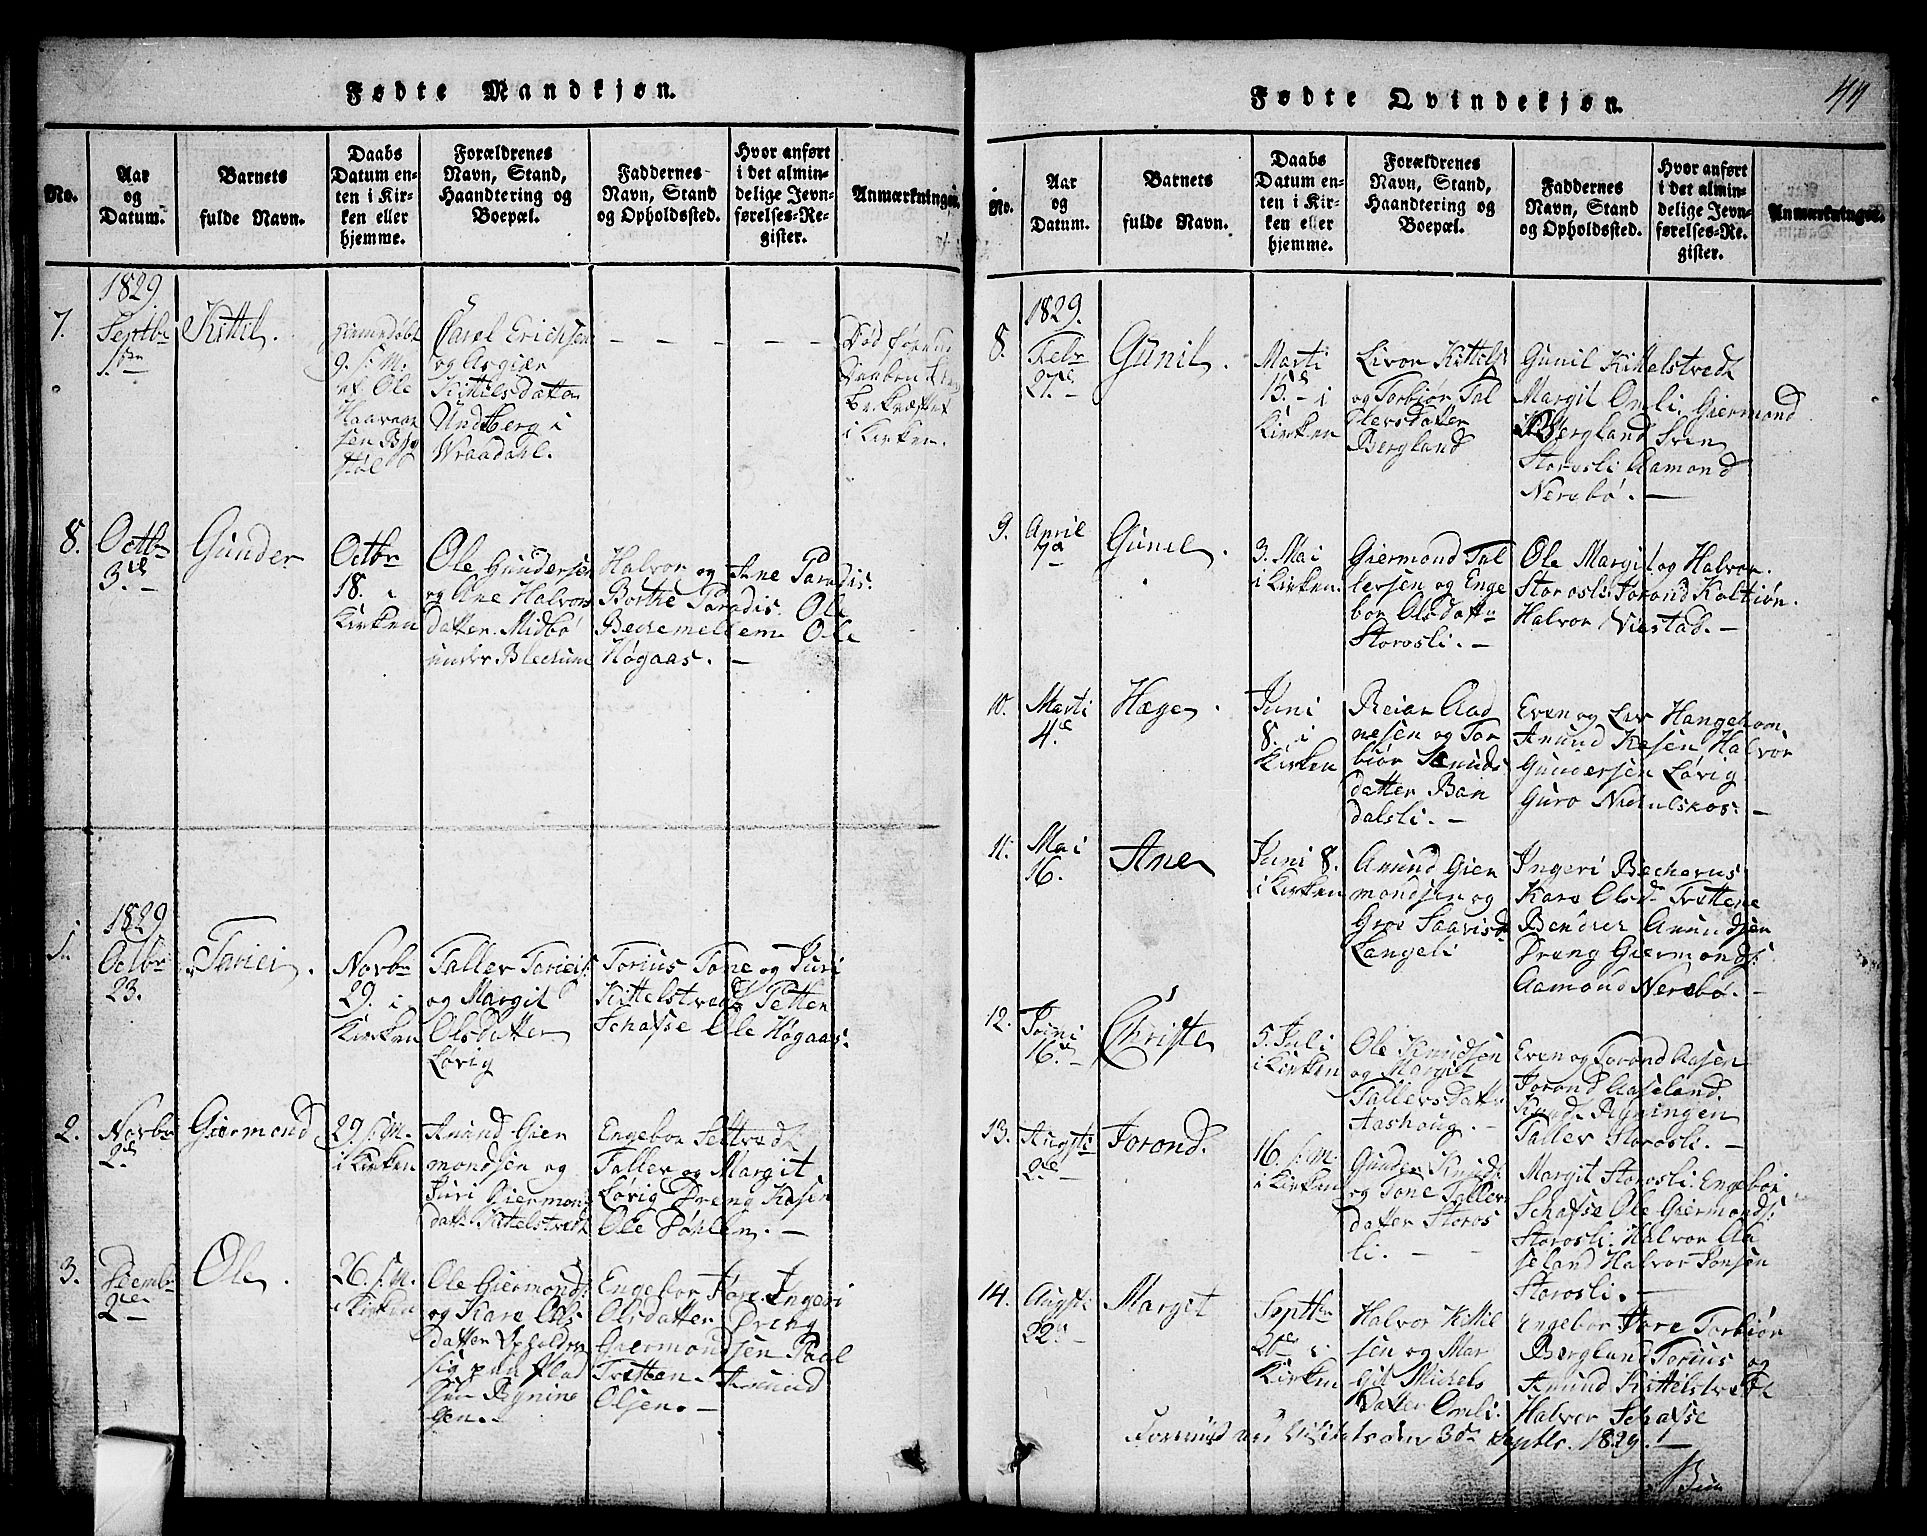 Fødte Mandkjøn.
No.
Aar
og
Datum.
Barnets
fulde Navn.
Daabs
Datum en-
ten i Kir-
ken eller
hjemme.
Forældrenes
Navn, Stand,
Haandtering og
Boepæl.
Faddernes
Navn, Stand
og Opholdssted.
Hvor anført
i det almin-
delige Jevn-
førelses-Re-
gister.
Anmærkninger.
1829.
7.
Septbr
Kittil.
9.
af Ole
Erichsen
og Asgiær
Kittilsdatter
Undtberg i
Wraadahl.
Død
i Kirken.
8.
Octbr
3die
Gunder
Octbr
18. i
Kirken
Ole Gundersen
og Ane Halvors
datter Midbø
under
Halvor og Ane Paradis.
Berthe Paradis. Ole
Ole
Høgaas. —
1829
1.
Octbr
23.
Tariei.
Novbr
29. i
Kirken
Taller Torieis:
og Margit
Olsdatter
Løvig
Torius Tone og Juri
Kittelstved Petter
Schafse Ole Høgaas.
2.
Novbr
2de
Giermond
29. s. M.
i Kirken
Anund Gier
mondsen og
Juri Giermon:
datt: Kittelstvedt
Engebor
Taller og Margit
Løvig Dreng Kasen
Ole
3.
2de
Ole.
26. s. M.
i Kirken
Ole Giermonds:
og Kare Ols
datter
sig paa Plad
sen Rynin
gen. —
Engebor Ingeri
Olsdatter Dreng
Giermondsen Paal
Tretten. Anund
Olsen. —
Fødte Qvindekjøn.
44
No.
Aar
og
Datum.
Barnets
fulde Navn.
Daabs
Datum en-
ten i Kir-
ken eller
hjemme.
Forældrenes
Navn, Stand,
Haandtering og
Boepæl.
Faddernes
Navn, Stand
og Opholdssted.
Hvor anført
i det almin-
delige Jevn-
førelses-Re-
gister.
Anmærkninger.
1829.
8.
Febr
27de
Gunil.
Marti
15de i
Kirken
Livor Kittils
og Torbiør Tal
lersdatter
Bergland
Gunil Kittelstvedt
Margit Omli, Giermond
Bergland Sven
Storosli Aamond
Nerebø. —
9.
April
7de
Gunil.
3. Mai
i Kirken.
Giermond Tal
lersen og Enge
bor Olsdatter
Storosli. —
Ole Margit og Halvor
Storosli Jorond Kaltiøn.
Halvor Viestad. —
10.
Marti
4de
Hæge.
Juni
8. i
Kirken
Reiar Aad
nesen og Tor
biør Knuds
datter Ban
dalsli. —
Even og Liv Haugehom
Anund Kasen Halvor
Gundersen Løvig
Guro
11.
Mai
16.
Ane
Juni 8.
i Kirken
Anund Gier
mondsen og
Groe Saavisd
Langeli
Ingeri Becherus
Kare Olsd: Trettene
Bendret Anundsen
Dreng Giermonds:
Aamond Nerebø. —
12.
Juni
16de
Christe
5. Juli
i Kirken
Ole Knudsen
og Margit
Tallersdatter
Aashaug. —
Even og Torond Aasen
Jorond Aaseland.
Knud Ryningen
Taller Storosli. —
13.
Augsti
2de
Jorond.
16. s. M.
i Kirken
Gunder Knuds:
og Tone Taller
datter Storos
li. —
Margit Storosli. Engebor
Schafse Ole Giermonds:
Storosli. Halvor Aa
seland Halvor Jonsen
Storosli. —
14.
Augsti
22de
Margit
Septbr
20de i
Kirken
Halvor Kittil
sen og Mar
git Michels
datter Omli.
Engebor Tore Torbiør
Bergland Torius og
Anund Kittelstvedt
Halvor Schafse
Visitats den 3die Septbr. 1829.